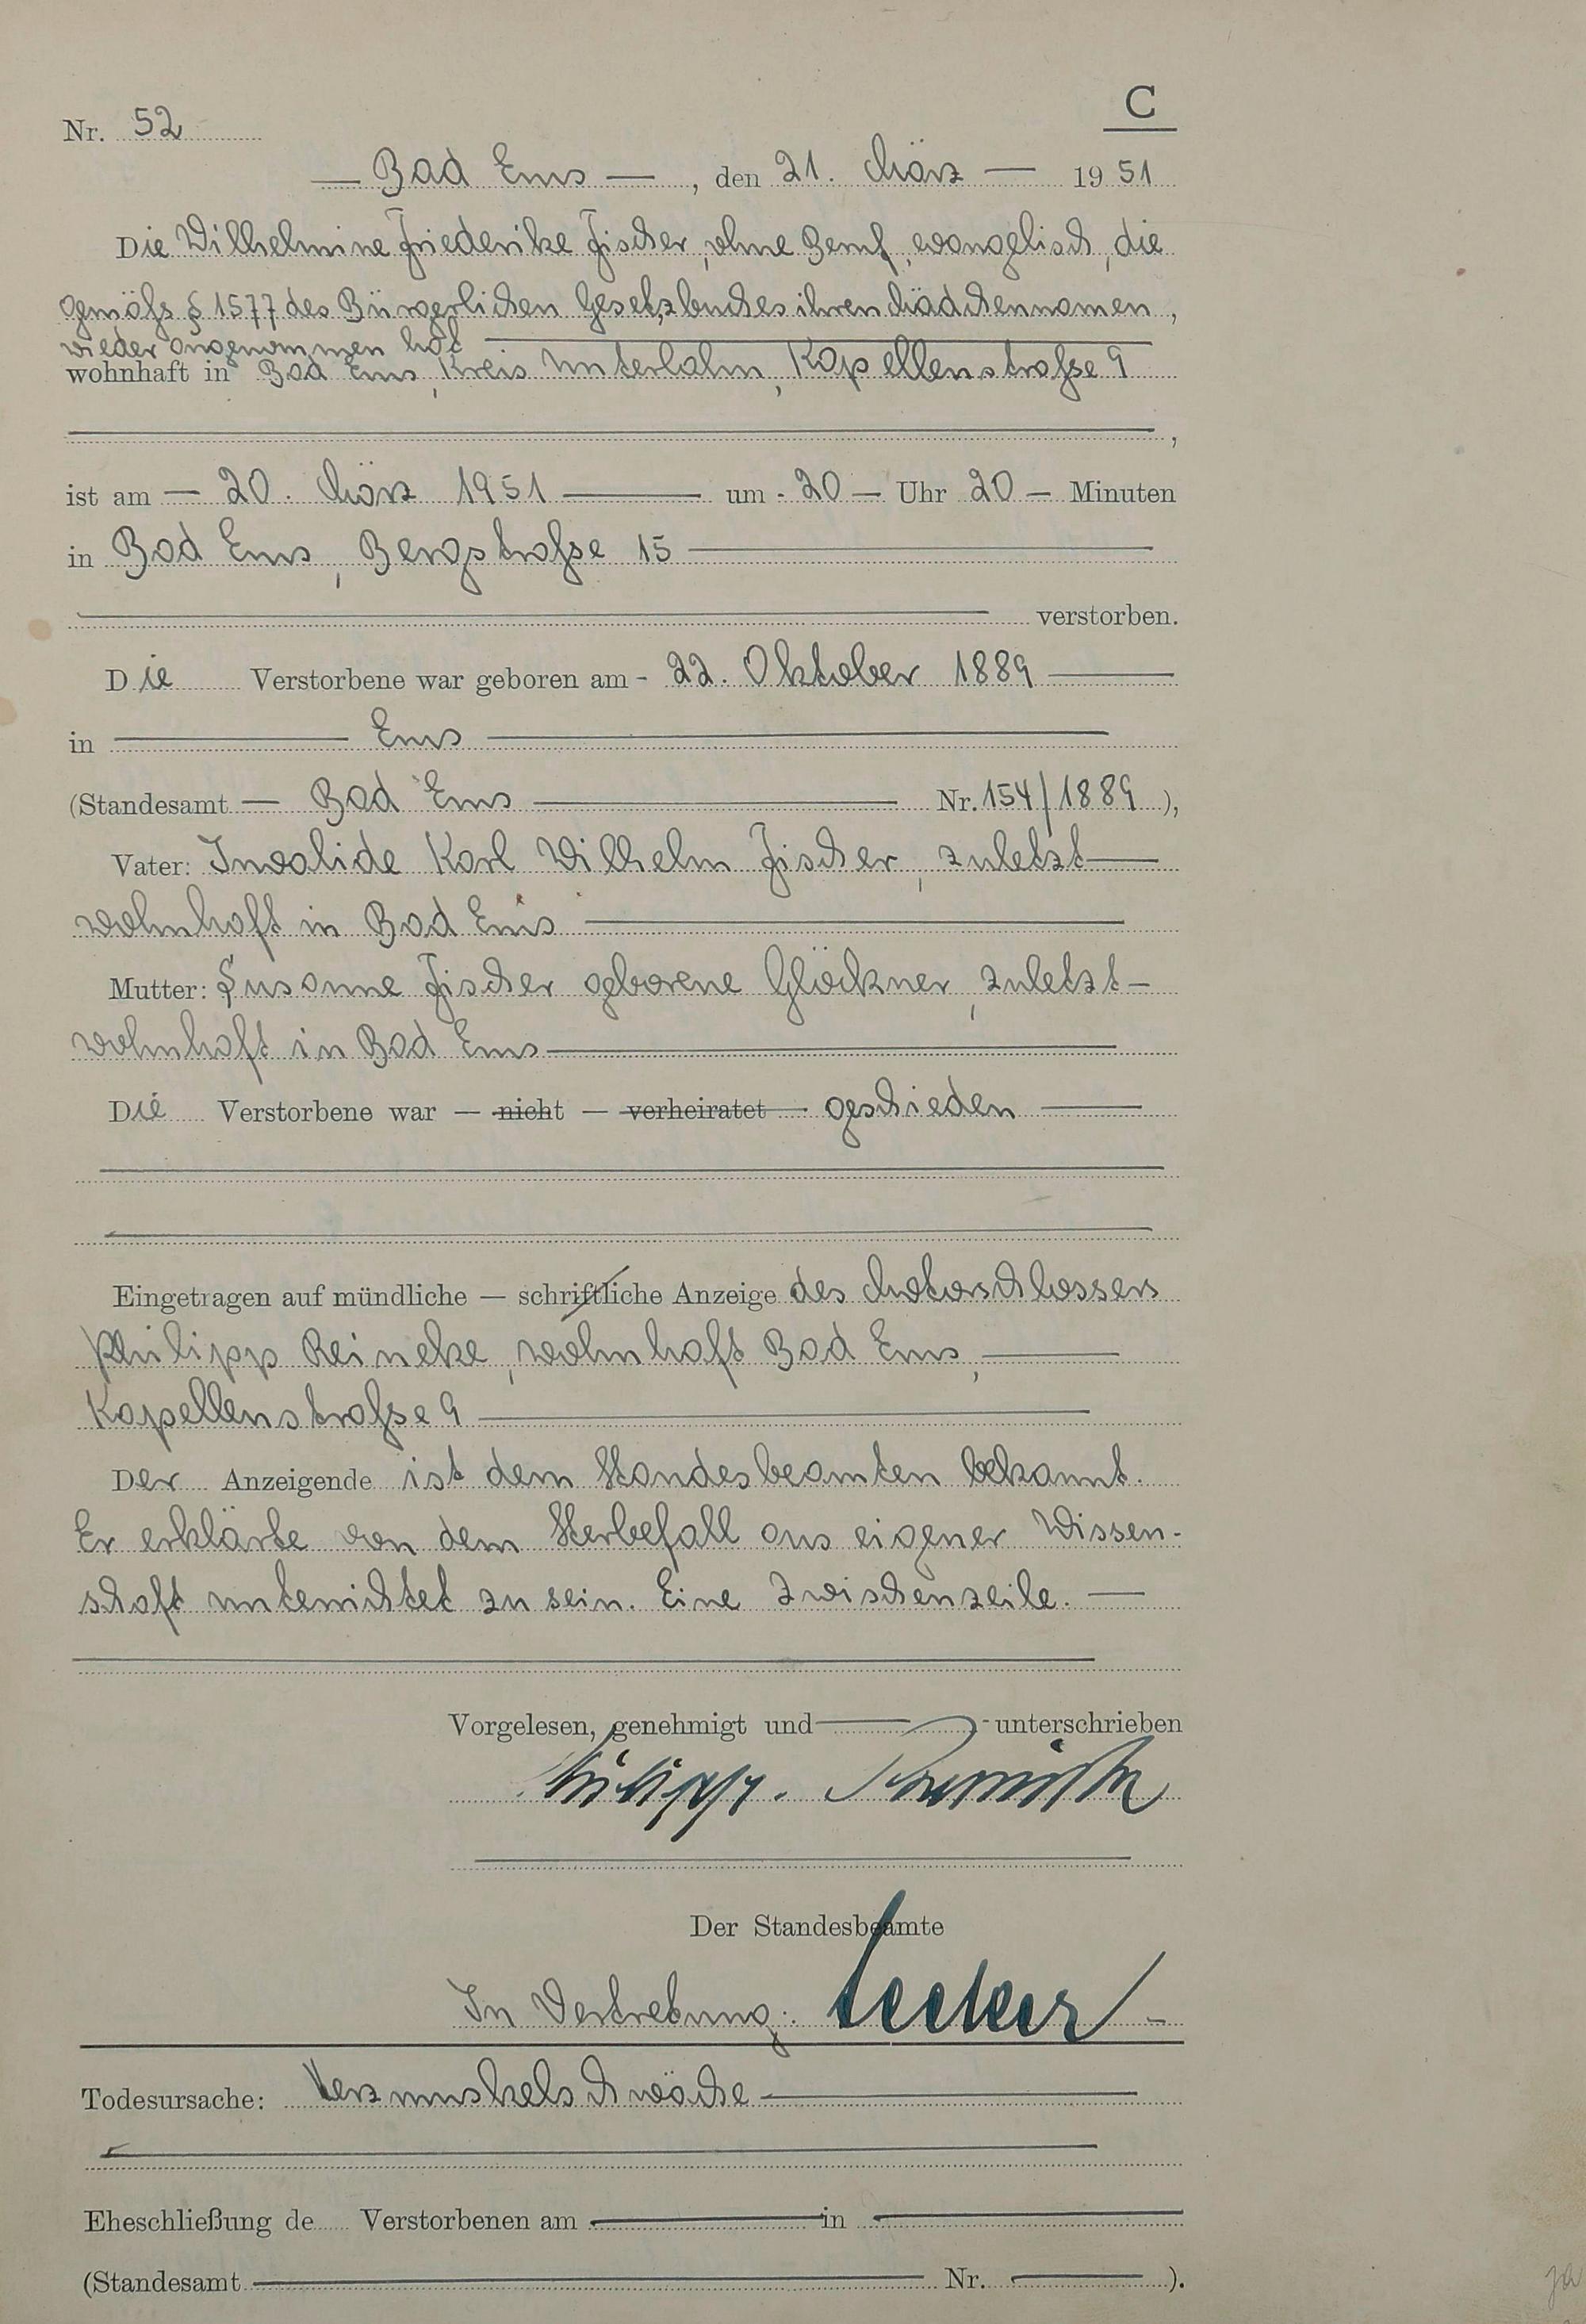 C
Nr. 52
— Bad Ems —, den 21. März — 1951
Die Wilhelmine Friederike Fischer, ohne Beruf, evangelisch, die
gemäß § 1577 des Bürgerlichen Gesetzbuches ihren Mädchennamen,
wieder angenommen hat
wohnhaft in Bad Ems, Kreis Unterlahn, Kapellenstraße 9
,
ist am — 20. März 1951 — um - 20 — Uhr 20 — Minuten
in Bad Ems, Bergstraße 15 —
verstorben.
Die Verstorbene war geboren am - 22. Oktober 1889 —
in — Ems —
(Standesamt — Bad Ems — Nr. 154/1889 ),
Vater: Invalide Karl Wilhelm Fischer, zuletzt —
wohnhaft in Bad Ems —
Mutter: Susanne Fischer geborene Glöckner, zuletzt —
wohnhaft in Bad Ems —
Die Verstorbene war — nicht — verheiratet geschieden —
Eingetragen auf mündliche — schriftliche Anzeige des Motorschlossers
Philipp Reineke, wohnhaft Bad Ems, —
Kapellenstraße 9 —
Der Anzeigende ist dem Standesbeamten bekannt.
Er erklärte von dem Sterbefall aus eigener Wissen-
schaft unterrichtet zu sein. Eine Zwischenzeile. —
Vorgelesen, genehmigt und — unterschrieben
Philipp
Der Standesbeamte
In Vertretung:
Todesursache: Herzmuskelschwäche —
Eheschließung de Verstorbenen am — in —
(Standesamt — Nr. — ).